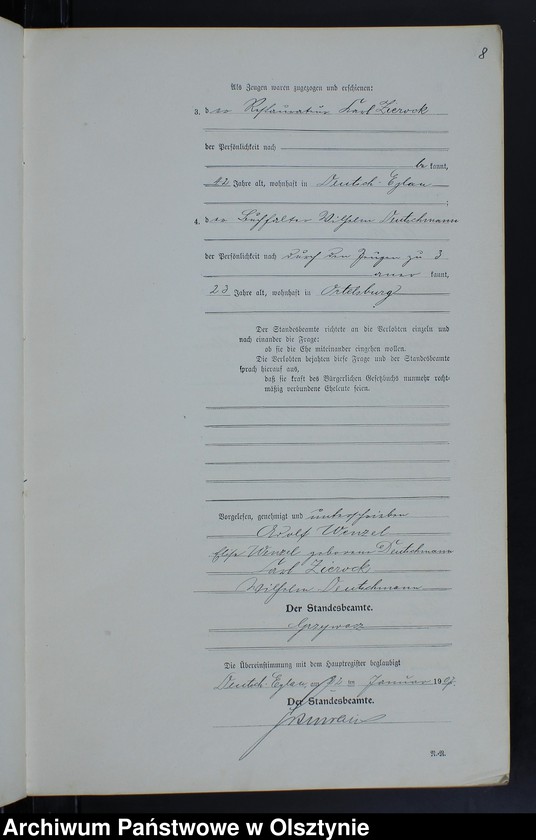 8
Als Zeugen waren zugezogen und erschienen:
3. der Restaurateur Karl Zierock
der Persönlichkeit nach
be kannt,
42 Jahre alt, wohnhaft in Deutsch-Eylau
;
4. der Buchhalter Wilhelm Deutschmann
der Persönlichkeit nach durch den Zeugen zu 3
aner kannt,
23 Jahre alt, wohnhaft in Ortelsburg
Der Standesbeamte richtete an die Verlobten einzeln und
nach einander die Frage:
ob sie die Ehe miteinander eingehen wollen.
Die Verlobten bejahten diese Frage und der Standesbeamte
sprach hierauf aus,
daß sie kraft des Bürgerlichen Gesetzbuchs nunmehr recht-
mäßig verbundene Eheleute seien.
Vorgelesen, genehmigt und unterschrieben
Adolf Wenzel
Elise Wenzel geborene Deutschmann
Carl Zierock
Wilhelm Deutschmann
Der Standesbeamte.
Grzywacz
Die Übereinstimmung mit dem Hauptregister beglaubigt
Deutsch-Eylau, am Januar 1907.
Der Standesbeamte.
R.-A.
Archiwum Państwowe w Olsztynie